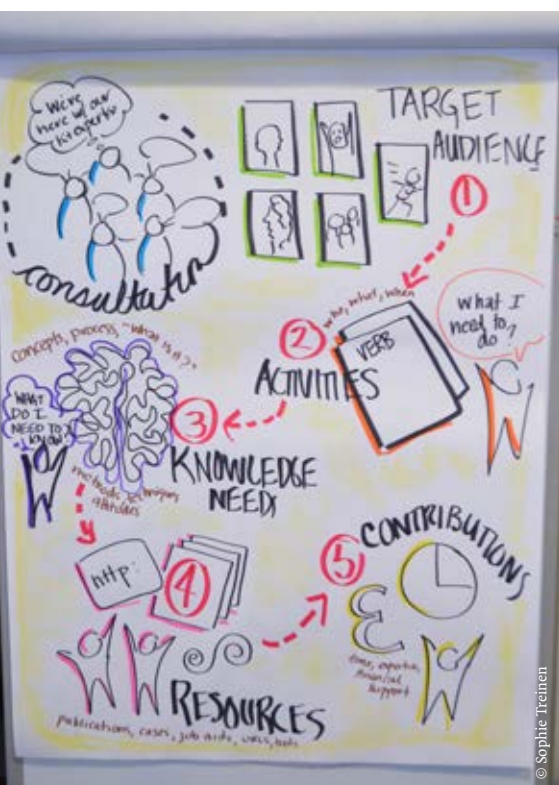 We're
here w/ our
consultation
TARGET
AUDIENCE
1
who, what, when
2
VERB
ACTIVITIES
What I
need to
do?
concepts, process, "what is it?"
WHAT
DO I
NEED TO
KNOW?
3
KNOWLEDGE
NEED
methods, techniques
attitudes
http:
4
RESOURCES
publications, cases, job aids,
5
CONTRIBUTIONS
time, expertise,
financial
support
© Sophie Treinen